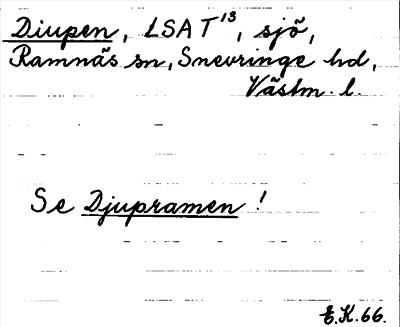 Diupen, LSAT¹³, sjö,
Ramnäs sn, Snevringe hd,
Västm. l.
Se Djupramen!
E.K.66.